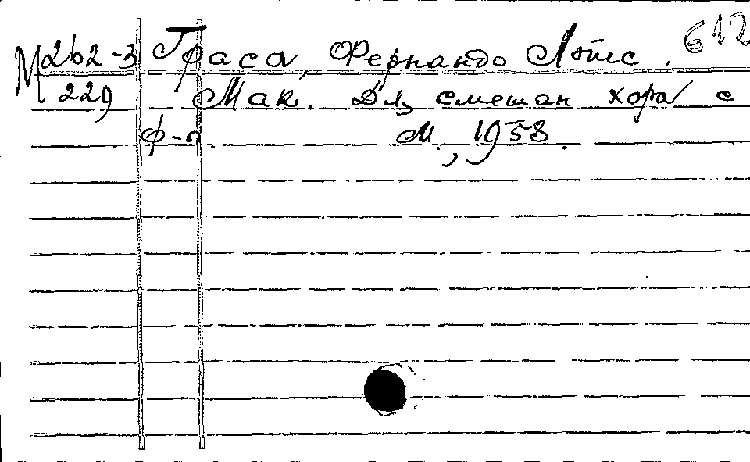 612
М262-3 Граса, Фернандо Лопис.
229 Мак. Для смешан хора с
ф-п. М., 1958.